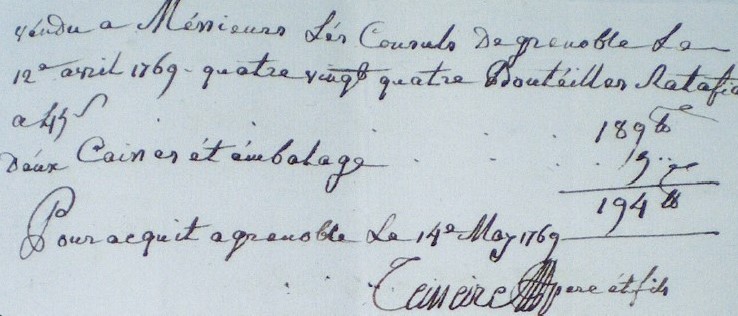 vendu a Méssieurs Lés Consuls De grenoble Le
12e avril 1769 - quatre vingt quatre Boutéilles Ratafia
a 45 s . . . . 189 ₶
Déux Caisses ét émbalage . . . 5
194 ₶
Pour acquit a grenoble Le 14e May 1769
Teisseire pere ét fils